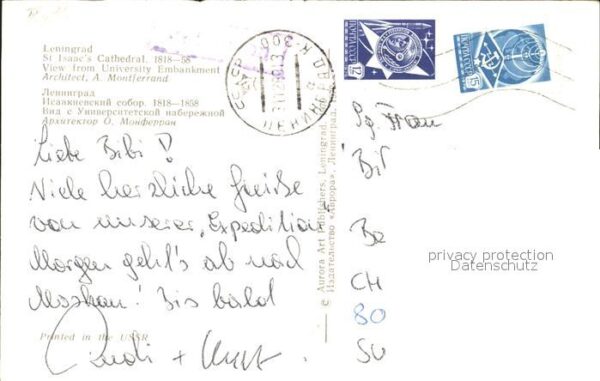 Leningrad
St Isaac's Cathedral, 1818—58
View from University Embankment
Architect, A. Montferrand
Ленинград
Исаакиевский собор. 1818—1858
Вид с Университетской набережной
Архитектор О. Монферран
Liebe Bibi!
Viele herzliche Grüße
von unserer „Expedition"
Morgen geht's ab nach
Moskau! Bis bald
Printed in the USSR
© Aurora Art Publishers, Leningrad,
Издательство «Аврора», Ленинград,
12
15
Frau
Be
CH
80
privacy protection
Datenschutz